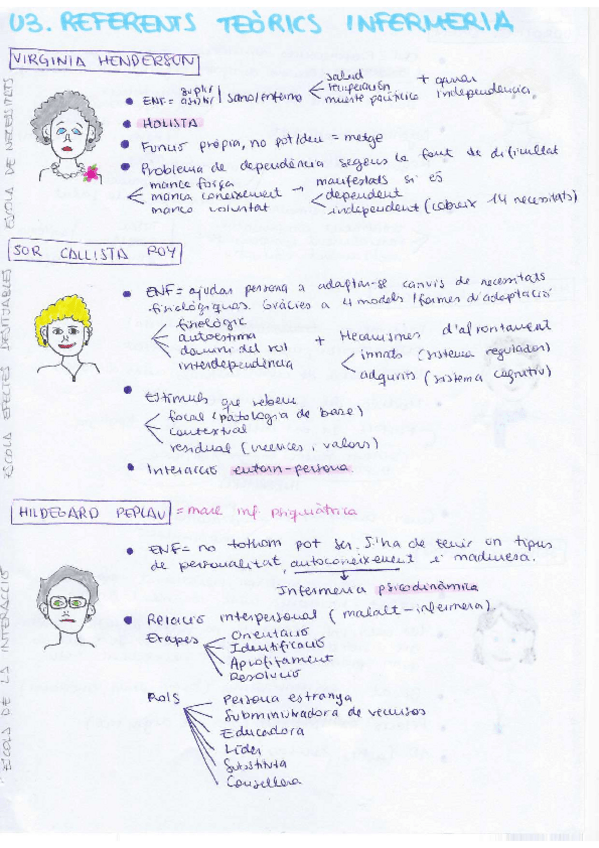 U3. REFERENTS TEÒRICS INFERMERIA
VIRGINIA HENDERSON
ESCOLA DE NECESSITATS
• ENF = suplir / assistir | sano/enfermo < salud
recuperación
muerte pacífica + guanar independència.
• HOLISTA
• Funció pròpia, no pot/deu = metge
• Problema de dependència segons la font de dificultat
manca força
manca coneixement → manifestats si és
manca voluntat
dependent
independent (cobreix 14 necessitats)
SOR CALLISTA ROY
ESCOLA EFECTES DESITJABLES
• ENF = ajudar persona a adaptar-se canvis de necessitats
fisiològiques. Gràcies a 4 models / formes d'adaptació
fisiològic
autoestima
domini del rol
interdependència
+ Mecanismes d'afrontament
innats (sistema regulador)
adquirits (sistema cognitiu)
• Estímuls que rebem
focal (patologia de base)
contextual
residual (creences, valors)
• Interacció entorn-persona
HILDEGARD PEPLAU = mare inf psiquiàtrica
ESCOLA DE LA INTERACCIÓ
• ENF = no tothom pot ser. S'ha de tenir un tipus
de personalitat, autoconeixement i maduresa.
Infermeria psicodinàmica
• Relació interpersonal (malalt-infermera).
Etapes
Orientació
Identificació
Aprofitament
Resolució
Rols
Persona estranya
Subministradora de recursos
Educadora
Líder
Substituta
Consellera